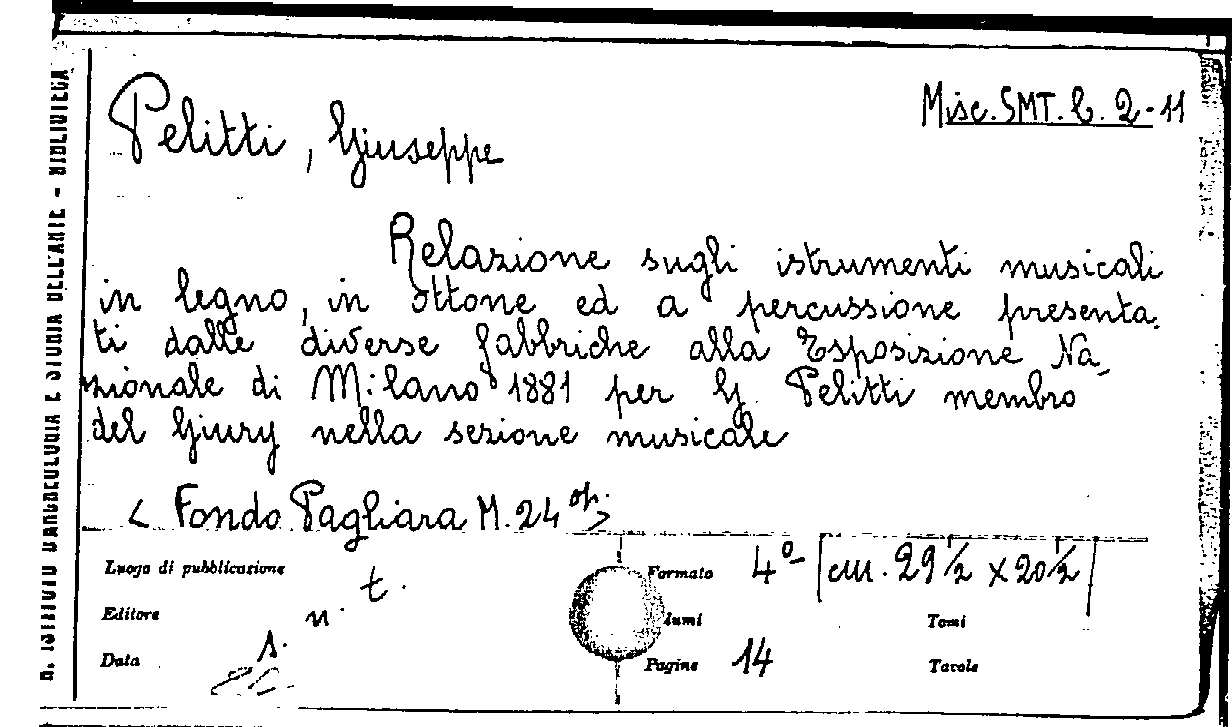 Misc. SMT. C. 2-11
Pelitti, Giuseppe
Relazione sugli istrumenti musicali
in legno, in ottone ed a percussione presenta-
ti dalle diverse fabbriche alla Esposizione Na-
zionale di Milano 1881 per G. Pelitti membro
del Giury nella sezione musicale
< Fondo Pagliara M. 24 op. >
Luogo di pubblicazione
Formato 4º [cm. 29 ½ x 20 ½]
Editore s. n. t.
lumi
Tomi
Data
Pagine 14
Tavole
R. ISTITUTO D'ARCHEOLOGIA E STORIA DELL'ARTE - BIBLIOTECA